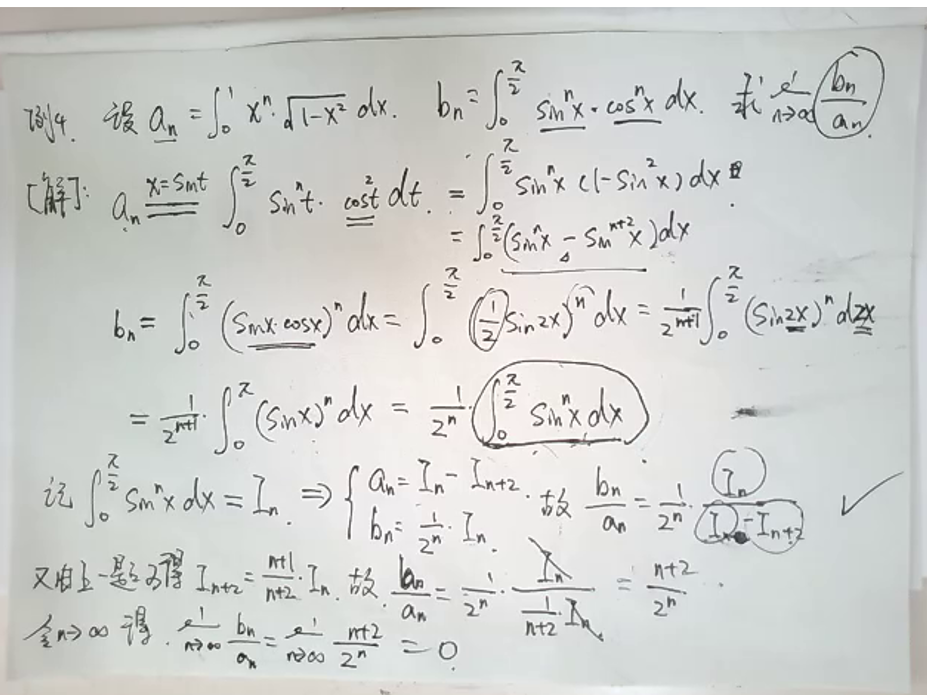 例4. 设 aₙ = ∫₀¹ xⁿ·√(1-x²) dx. bₙ = ∫₀^(π/2) sinⁿx·cosⁿx dx. 求 lim_(n→∞) bₙ/aₙ
[解]: aₙ =(x=sint) ∫₀^(π/2) sinⁿt·cos²t dt. = ∫₀^(π/2) sinⁿx (1-sin²x) dx.
= ∫₀^(π/2) (sinⁿx - sinⁿ⁺²x) dx
bₙ = ∫₀^(π/2) (sinx·cosx)ⁿ dx = ∫₀^(π/2) (1/2 sin2x)ⁿ dx = 1/2ⁿ⁺¹ ∫₀^(π/2) (sin2x)ⁿ d2x
= 1/2ⁿ⁺¹·∫₀^π (sinx)ⁿ dx = 1/2ⁿ·∫₀^(π/2) sinⁿx dx
记 ∫₀^(π/2) sinⁿx dx = Iₙ. ⇒ { aₙ = Iₙ - Iₙ₊₂. bₙ = 1/2ⁿ·Iₙ. 故 bₙ/aₙ = 1/2ⁿ·Iₙ/(Iₙ - Iₙ₊₂) ✓
又由上一题可得 Iₙ₊₂ = (n+1)/(n+2)·Iₙ. 故 bₙ/aₙ = 1/2ⁿ·Iₙ/(1/(n+2)·Iₙ) = (n+2)/2ⁿ.
令 n→∞ 得. lim_(n→∞) bₙ/aₙ = lim_(n→∞) (n+2)/2ⁿ = 0